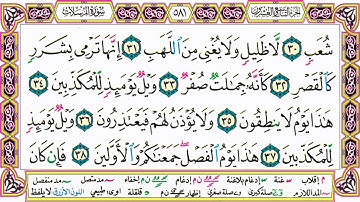 الجزء التاسع والعشرون ٥٨١ سورة المرسلات
شُعَبٍ ٣٠ لَّا ظَلِيلٍ وَلَا يُغْنِي مِنَ ٱللَّهَبِ ٣١ إِنَّهَا تَرْمِي بِشَرَرٍ
كَٱلْقَصْرِ ٣٢ كَأَنَّهُۥ جِمَٰلَتٌ صُفْرٌ ٣٣ وَيْلٌ يَوْمَئِذٍ لِّلْمُكَذِّبِينَ ٣٤
هَٰذَا يَوْمُ لَا يَنطِقُونَ ٣٥ وَلَا يُؤْذَنُ لَهُمْ فَيَعْتَذِرُونَ ٣٦ وَيْلٌ يَوْمَئِذٍ
لِّلْمُكَذِّبِينَ ٣٧ هَٰذَا يَوْمُ ٱلْفَصْلِ جَمَعْنَٰكُمْ وَٱلْأَوَّلِينَ ٣٨ فَإِن كَانَ